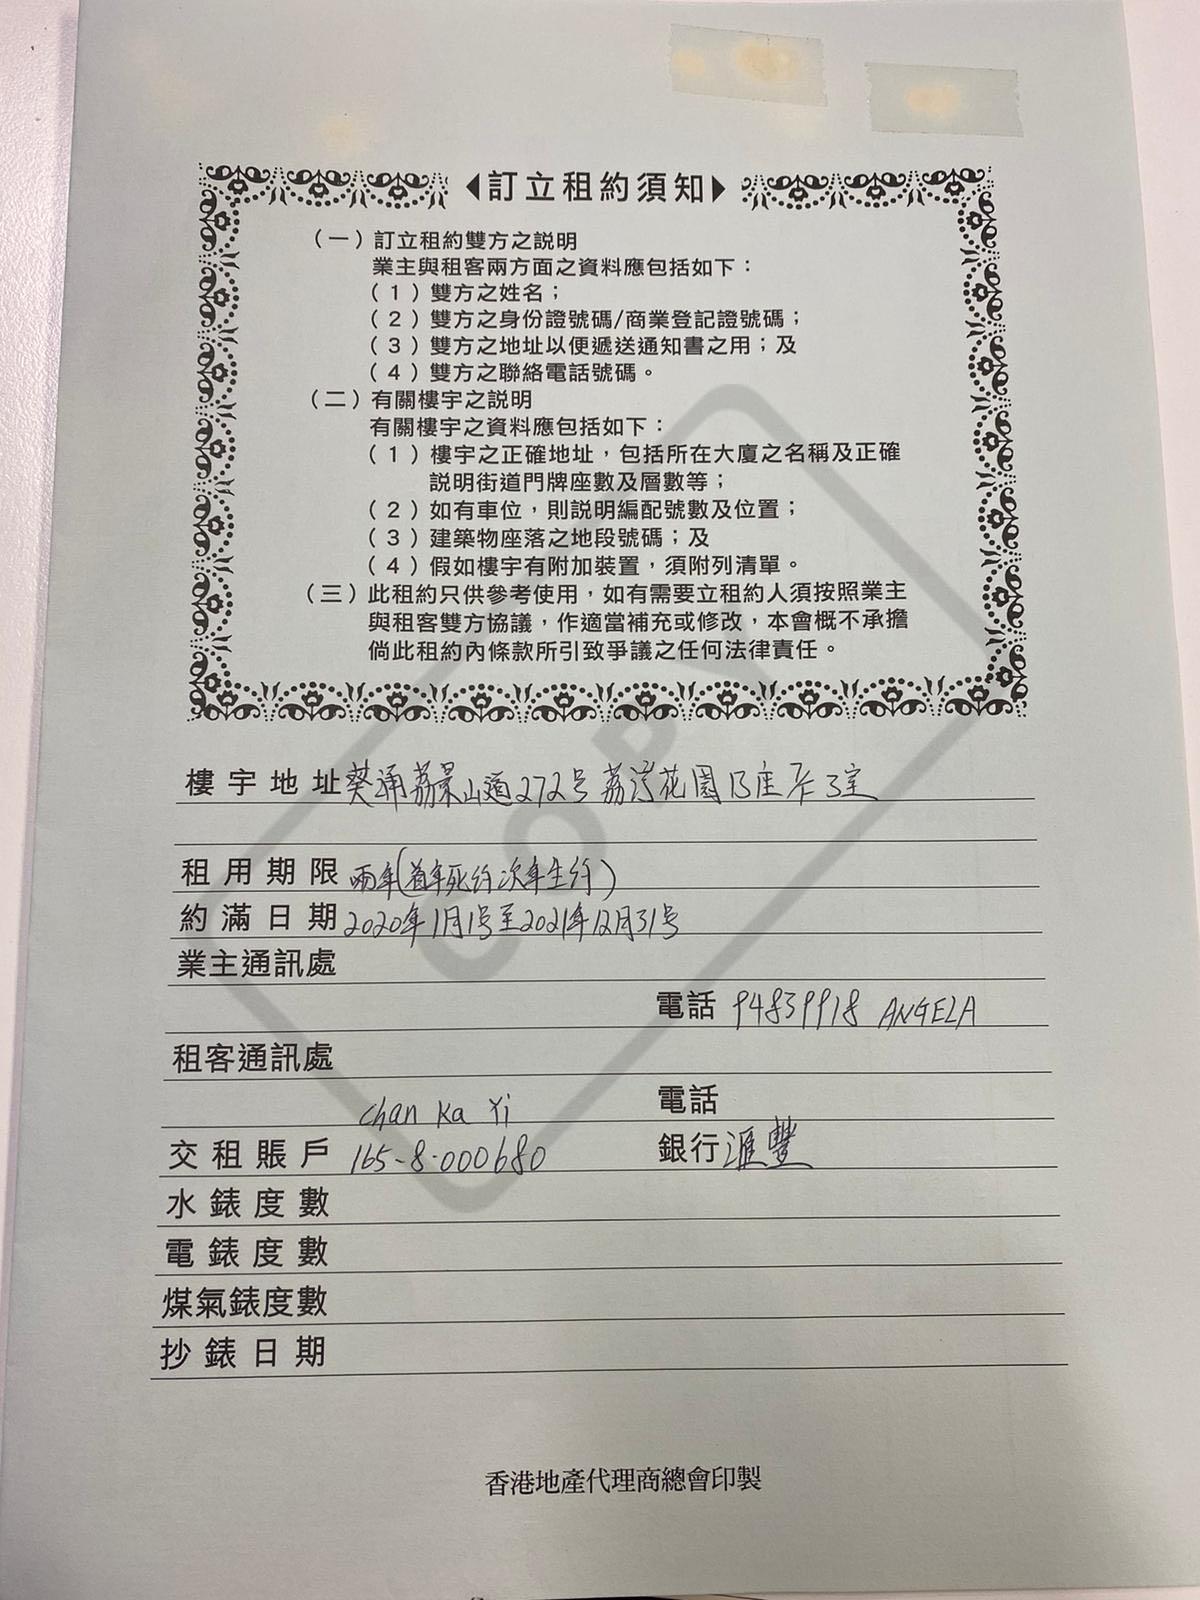 ◀訂立租約須知▶
（一）訂立租約雙方之説明
業主與租客兩方面之資料應包括如下：
（1）雙方之姓名；
（2）雙方之身份證號碼/商業登記證號碼；
（3）雙方之地址以便遞送通知書之用；及
（4）雙方之聯絡電話號碼。
（二）有關樓宇之説明
有關樓宇之資料應包括如下：
（1）樓宇之正確地址，包括所在大廈之名稱及正確
説明街道門牌座數及層數等；
（2）如有車位，則説明編配號數及位置；
（3）建築物座落之地段號碼；及
（4）假如樓宇有附加裝置，須附列清單。
（三）此租約只供參考使用，如有需要立租約人須按照業主
與租客雙方協議，作適當補充或修改，本會概不承擔
倘此租約內條款所引致爭議之任何法律責任。
COPY
樓宇地址 葵涌荔景山道272号荔灣花園 座 3室
租用期限 兩年(首年死約次年生約)
約滿日期 2020年1月1号至2021年12月31号
業主通訊處
電話 94839918 ANGELA
租客通訊處
Chan Ka Yi 電話
交租賬戶 165-8-000680 銀行 滙豐
水錶度數
電錶度數
煤氣錶度數
抄錶日期
香港地產代理商總會印製